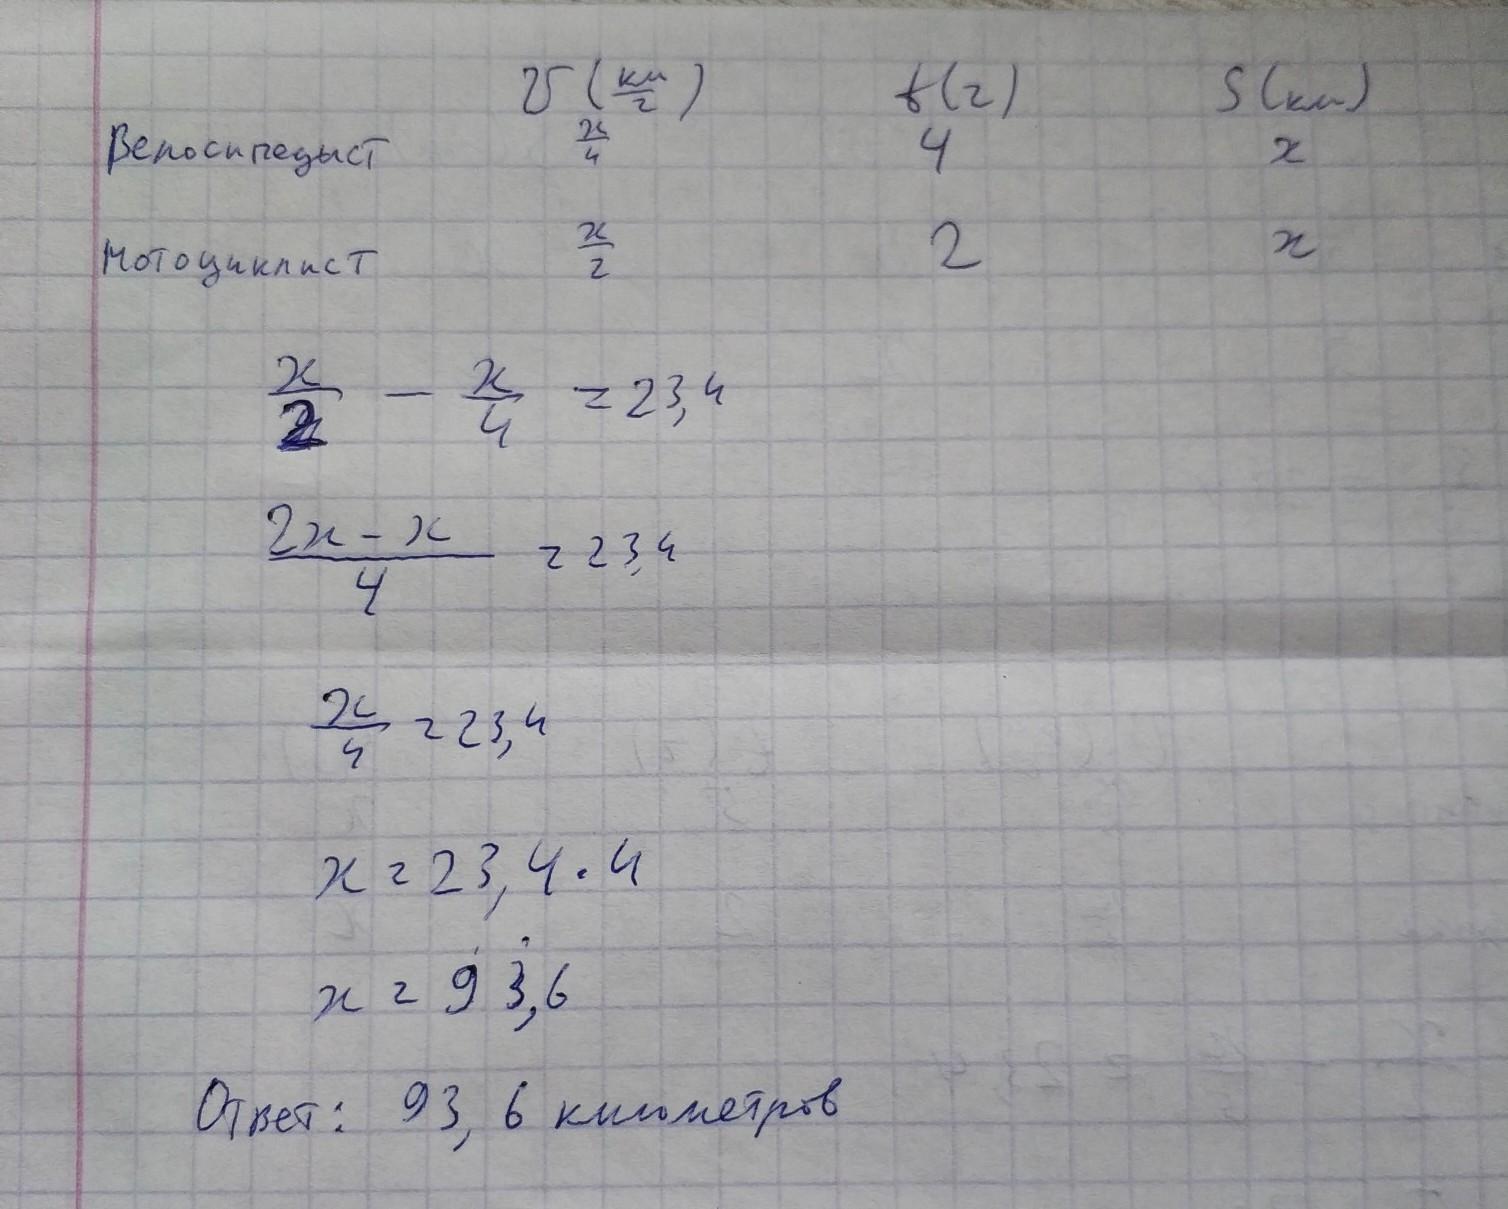 V (км/г) t(г) S(км)
Велосипедыст x/4 4 x
Мотоциклист x/2 2 x
x/2 - x/4 = 23,4
(2x - x)/4 = 23,4
x/4 = 23,4
x = 23,4 · 4
x = 93,6
Ответ: 93,6 километров